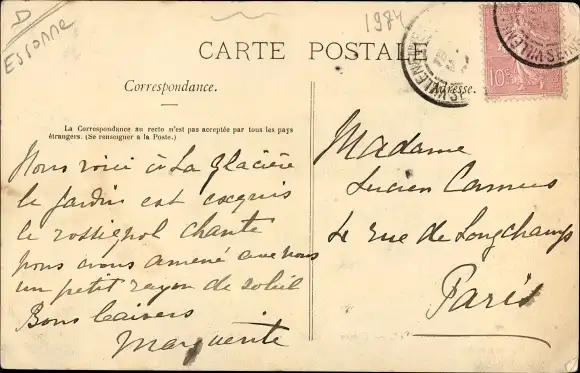 D
Essonne
1984
CARTE POSTALE
Correspondance.
Adresse.
La Correspondance au recto n'est pas acceptée par tous les pays
étrangers. (Se renseigner à la Poste.)
10
Nous voici à La Glacière
le jardin est exquis
le rossignol chante
nous avons amené avec nous
un petit rayon de soleil
Bons baisers
Marguerite
Madame
Lucien Camus
rue de Longchamp
Paris